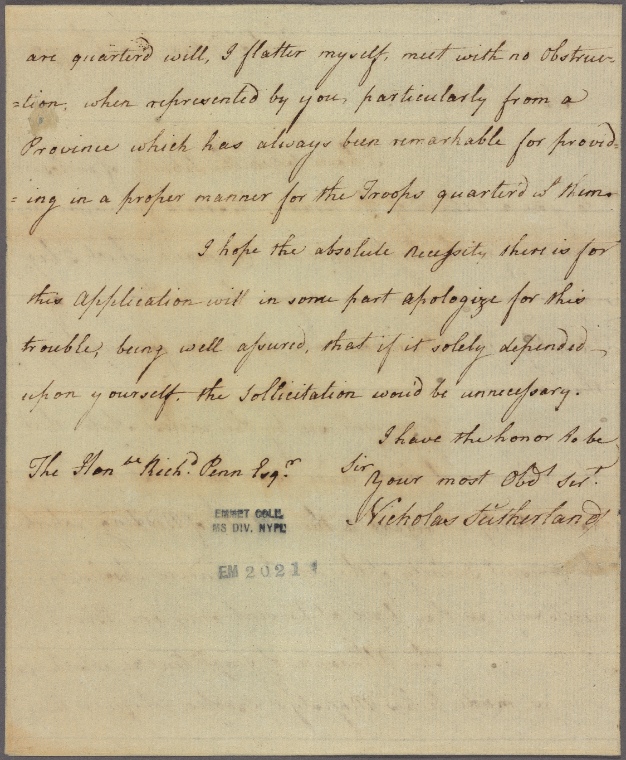 are quarter'd will, I flatter myself, meet with no Obstruc=
=tion, when represented by you, particularly from a
Province which has always been remarkable for provid=
=ing in a proper manner for the Troops quarter'd wt. them.
I hope the absolute necessity there is for
this Application will in some part apologize for this
trouble, being well assured, that if it solely depended
upon yourself, the Sollicitation would be unnecessary.
I have the honor to be
Sir
Your most Obdt. Sert.
Nicholas Sutherland
The Honble Richd. Penn Esqr.
EMMET COLL.
MS DIV. NYPL
EM 20211